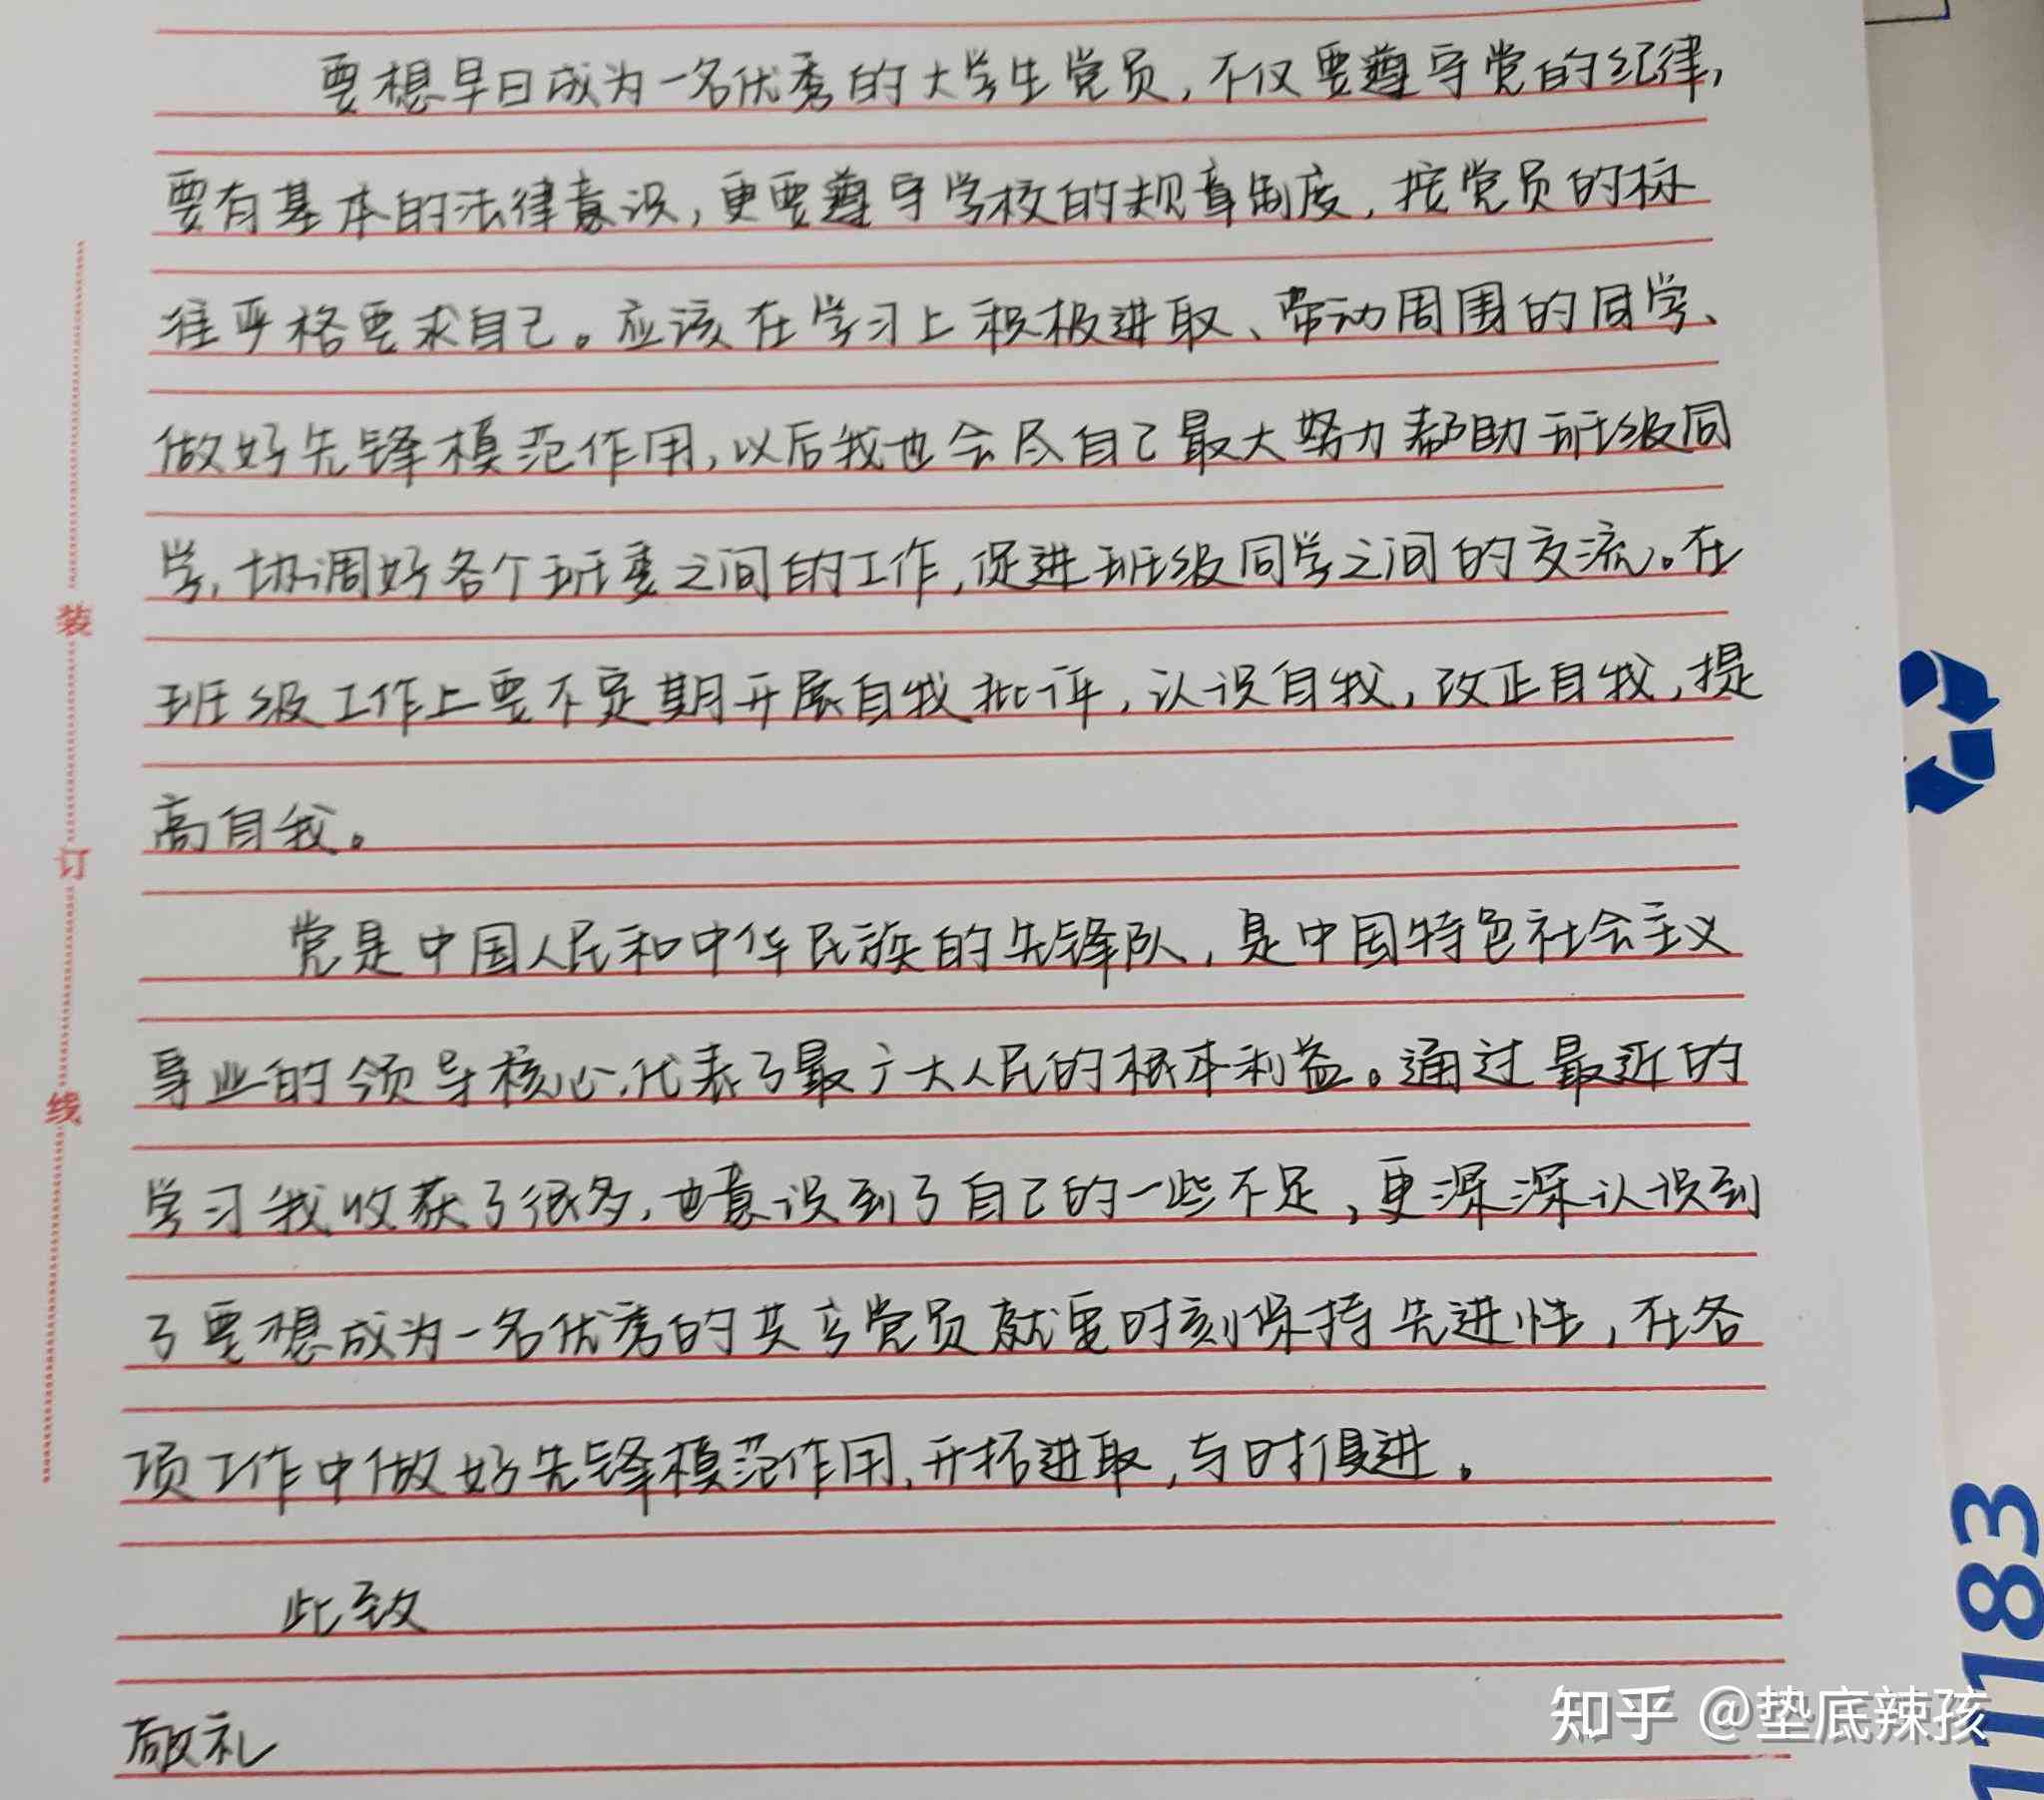 要想早日成为一名优秀的大学生党员，不仅要遵守党的纪律，
要有基本的法律意识，更要遵守学校的规章制度，按党员的标
准严格要求自己。应该在学习上积极进取、带动周围的同学、
做好先锋模范作用，以后我也会尽自己最大努力帮助班级同
学，协调好各个班委之间的工作，促进班级同学之间的交流。在
班级工作上要不定期开展自我批评，认识自我，改正自我，提
高自我。
党是中国人民和中华民族的先锋队，是中国特色社会主义
事业的领导核心，代表了最广大人民的根本利益。通过最近的
学习我收获了很多，也意识到了自己的一些不足，更深深认识到
了要想成为一名优秀的共产党员就要时刻保持先进性，在各
项工作中做好先锋模范作用，开拓进取，与时俱进。
此致
敬礼
装
订
线
11183
知乎 @垫底辣孩